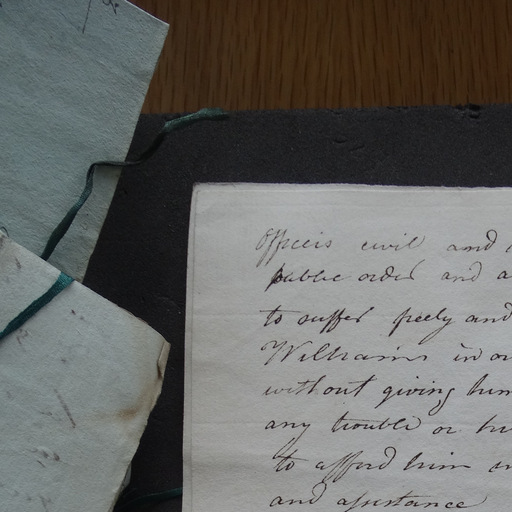 Officers civil and
public order and
to suffer freely and
Williams in
without giving him
any trouble or
to afford him
and assistance